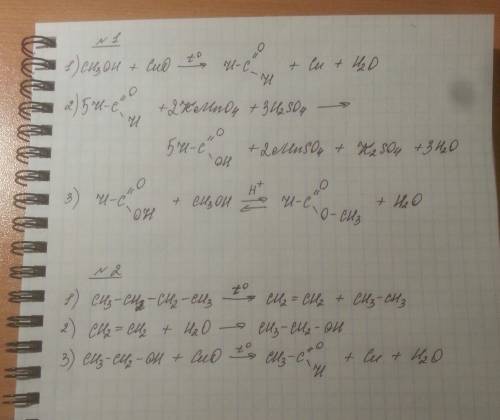 №1
1) CH3OH + CuO t°→ H-C(=O)-H + Cu + H2O
2) 5H-C(=O)-H + 2KMnO4 + 3H2SO4 →
5H-C(=O)-OH + 2MnSO4 + K2SO4 + 3H2O
3) H-C(=O)-OH + CH3OH H+⇌ H-C(=O)-O-CH3 + H2O
№2
1) CH3-CH2-CH2-CH3 t°→ CH2=CH2 + CH3-CH3
2) CH2=CH2 + H2O → CH3-CH2-OH
3) CH3-CH2-OH + CuO t°→ CH3-C(=O)-H + Cu + H2O